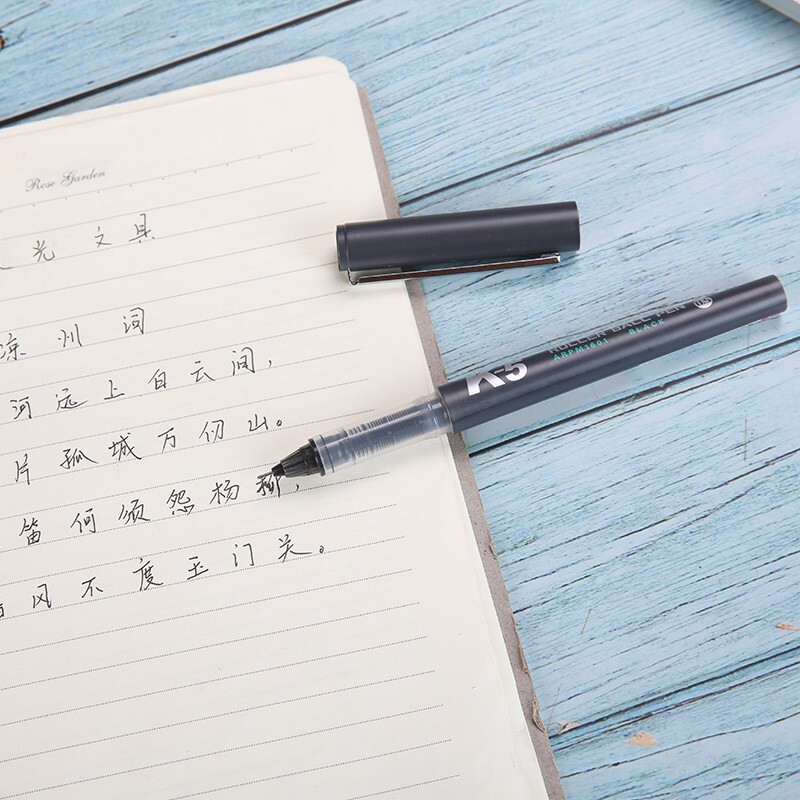 Rose Garden
光 文具
凉 州 词
河 远 上 白 云 间，
片 孤 城 万 仞 山。
笛 何 须 怨 杨 柳，
风 不 度 玉 门 关。
K-5
ROLLER BALL PEN
ARPM1601 BLACK